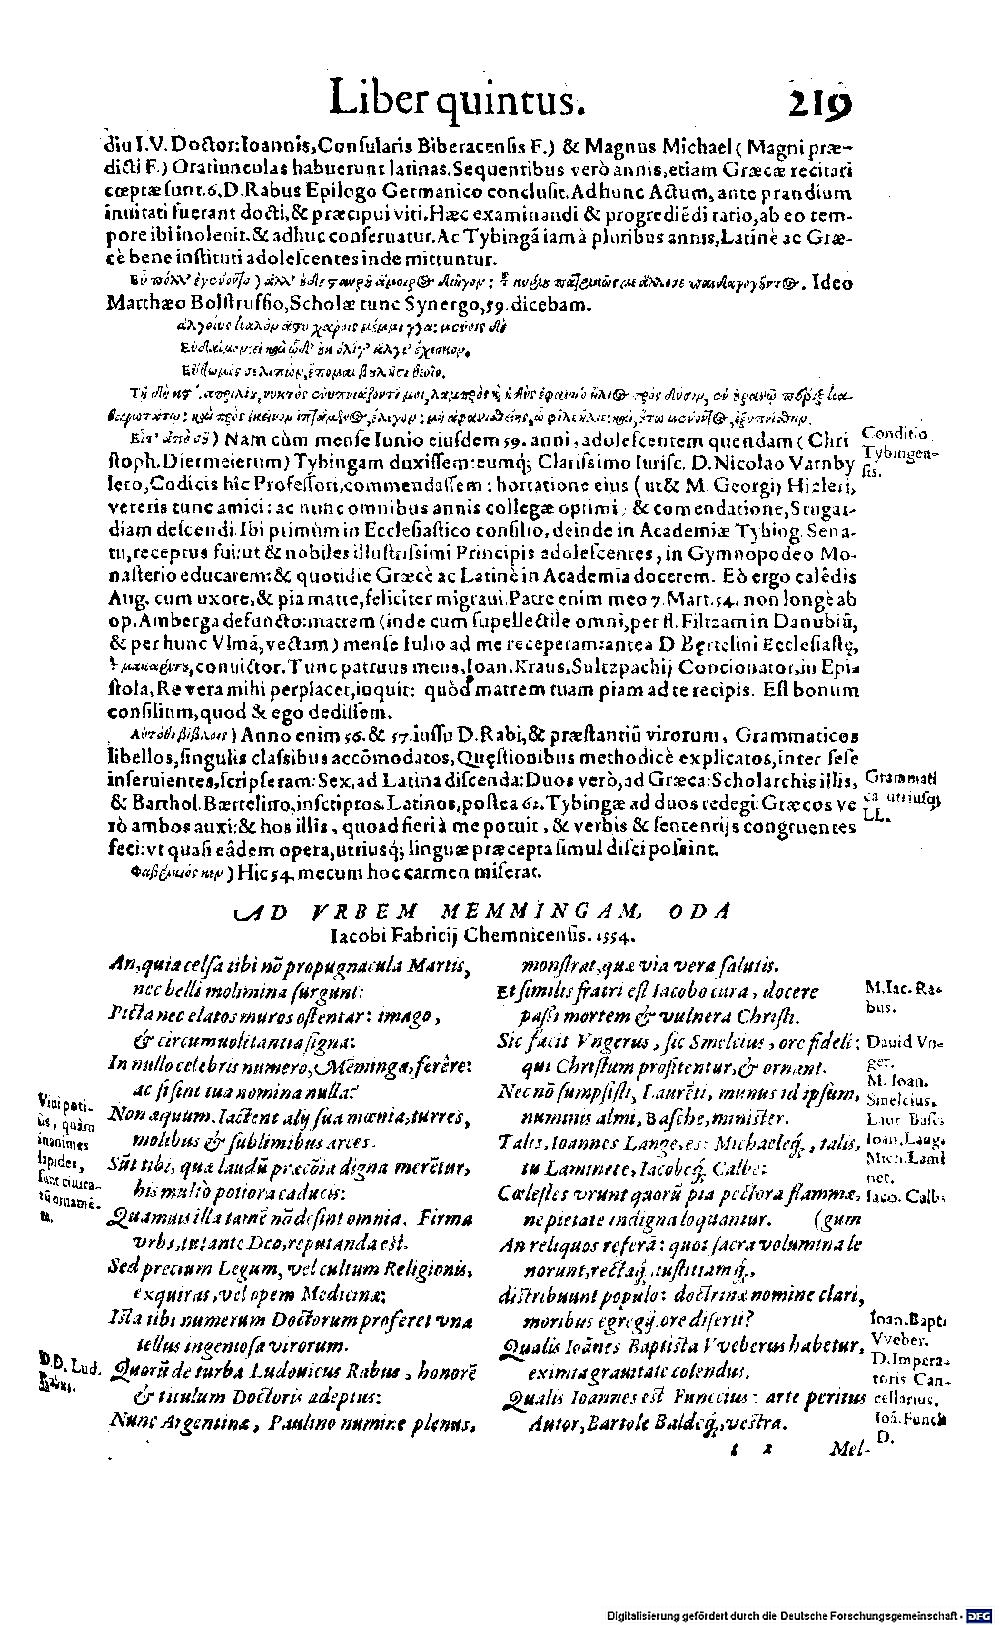 Liber quintus. 219
diu I.V. Doctor: Ioannis, Consularis Biberacensis F.) & Magnus Michael (Magni præ-
dicti F.) Oratiunculas habuerunt latinas. Sequentibus verò annis, etiam Græcæ recitari
cœptæ sunt. 6. D. Rabus Epilogo Germanico conclusit. Ad hunc Actum, ante prandium
inuitati fuerant docti, & præcipui viri. Hæc examinandi & progrediẽdi ratio, ab eo tem-
pore ibi inoleuit. & adhuc conseruatur. Ac Tybingã iam à pluribus annis, Latinè ac Græ-
cè bene instituti adolescentes inde mittuntur.
Ideo
Matthæo Bolstruffio, Scholæ tunc Synergo, 59. dicebam.
) Nam cùm mense Iunio eiusdem 59. anni, adolescentem quendam (Chri
stoph. Diermeierum) Tybingam duxissem: eumq́; Clarissimo Iurisc. D. Nicolao Varnby
lero, Codicis hîc Professori, commendassem: hortatione eius (ut & M. Georgij Hizleri,
veteris tunc amici: ac nunc omnibus annis collegæ optimi) & comendatione, Stugar-
diam descendi. Ibi primùm in Ecclesiastico consilio, deinde in Academiæ Tybing. Sena-
tu, receptus fui: ut & nobiles illustrissimi Principis adolescentes, in Gymnopodeo Mo-
nasterio educarem: & quotidie Græcè ac Latinè in Academia docerem. Eò ergo calẽdis
Aug. cum uxore, & pia matre, feliciter migraui. Patre enim meo 7. Mart. 54. non longè ab
op. Amberga defuncto: matrem (inde cum supellectile omni, per fl. Filtzam in Danubiũ,
& per hunc Vlmã, vectam) mense Iulio ad me receperam: antea D Bertelini Ecclesiastę,
convictor. Tunc patruus meus, Ioan. Kraus, Sultzpachij Concionator, in Epi
stola, Re vera mihi perplacet, inquit: quòd matrem tuam piam ad te recipis. Est bonum
consilium, quod & ego dedissem.
) Anno enim 56. & 57. iussu D. Rabi, & præstantiũ virorum, Grammaticos
libellos, singulis classibus accõmodatos, Quęstionibus methodicè explicatos, inter sese
inseruientes, scripseram: Sex, ad Latina discenda: Duos verò, ad Græca: Scholarchis illis,
& Barthol. Bærtelino, inscriptos. Latinos, postea 62. Tybingæ ad duos redegi: Græcos ve
rò ambos auxi: & hos illis, quoad fieri à me potuit, & verbis & sententijs congruentes
feci: vt quasi eâdem opera, utriusq́; linguæ præcepta simul disci possint.
) Hic 54. mecum hoc carmen miserat.
Conditio
Tybingen-
sis.
Grammati
ca utriusq́;
LL.
AD VRBEM MEMMINGAM, ODA
Iacobi Fabricij Chemnicensis. 1554.
An, quia celsa tibi nõ propugnacula Martis,
nec belli molimina surgunt:
Picta nec elatos muros ostentar: imago,
& circumuolitantia signa:
In nullo celebris numero, Meminga, ferêre:
ac si sint tua nomina nulla?
Non æquum. Iactent alij sua mœnia, turres,
molibus & sublimibus arces.
Sũt tibi, quæ laudũ præcõia digna merẽtur,
his multò potiora caducis:
Quamuis illa tamẽ nõ desint omnia. Firma
vrbs, tutante Deo, reputanda est.
Sed precium Legum, vel cultum Religionis,
exquiras, vel opem Medicinæ:
Ista tibi numerum Doctorum proferet vna
tellus ingeniosa virorum.
Quorũ de turba Ludouicus Rabus, honorẽ
& titulum Doctoris adeptus:
Nunc Argentinæ, Paulino numine plenus,
Viri poti-
ùs, quàm
inanimes
lapides,
sunt ciuita-
tũ ornamẽ-
ta.
D.D. Lud.
Rabus.
monstrat, quæ via vera salutis.
Et similis fratri est Iacobo cura, docere
passi mortem & vulnera Christi.
Sic facit Vngerus, sic Smelcius, ore fideli:
qui Christum profitentur, & ornant.
Nec nõ sumpsisti, Laurẽti, munus id ipsum,
numinis almi, Basche, minister.
Talis, Ioannes Lange, es: Michaelq́;, talis,
tu Laminete, Iacobeq́; Calbe:
Cœlestes vrunt quorũ pia pectora flammæ,
ne pietate indigna loquantur. (gum
An reliquos referã: quot sacra volumina le
norunt, rectaq́;, iustitiamq́;,
distribuunt populo: doctrinæ nomine clari,
moribus egregij, ore diserti?
Qualis Ioãnes Baptista Vveberus habetur,
eximia grauitate colendus.
Qualis Ioannes est Funccius: arte peritus
Autor, Bartole Baldeq́;, vestra.
M. Iac. Ra-
bus.
Dauid Vn-
ger.
M. Ioan.
Smelcius.
Laur Basc.
Ioan. Lang.
Mich. Lami
net.
Iaco. Calb.
Ioan. Bapt.
Vveber.
D. Impera-
toris Can-
cellarius.
Ioã. Funck
D.
t 2 Mel-
Digitalisierung gefördert durch die Deutsche Forschungsgemeinschaft - DFG